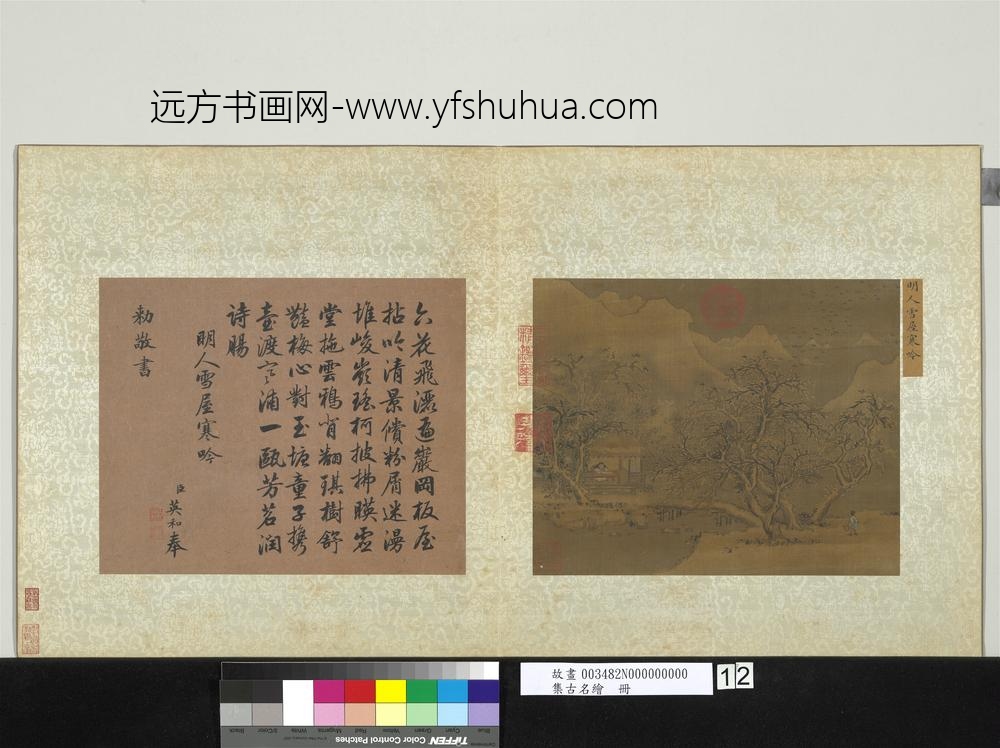 远方书画网-www.yfshuhua.com
明人雪屋寒吟
六花飛灑遍巖岡板屋
拈吟清景償粉屑迷漫
堆峻嶺瑤柯披拂暎虛
堂拖雲鴉背翻琪樹舒
豔梅心對玉塘童子攜
壺渡寒浦一甌芳茗潤
詩腸
明人雪屋寒吟
臣英和奉
勅敬書
故畫 003482N000000000
集古名繪 冊
12
Blue Cyan Green Yellow Red Magenta White 3/Color Black
TIFFEN Color Control Patches